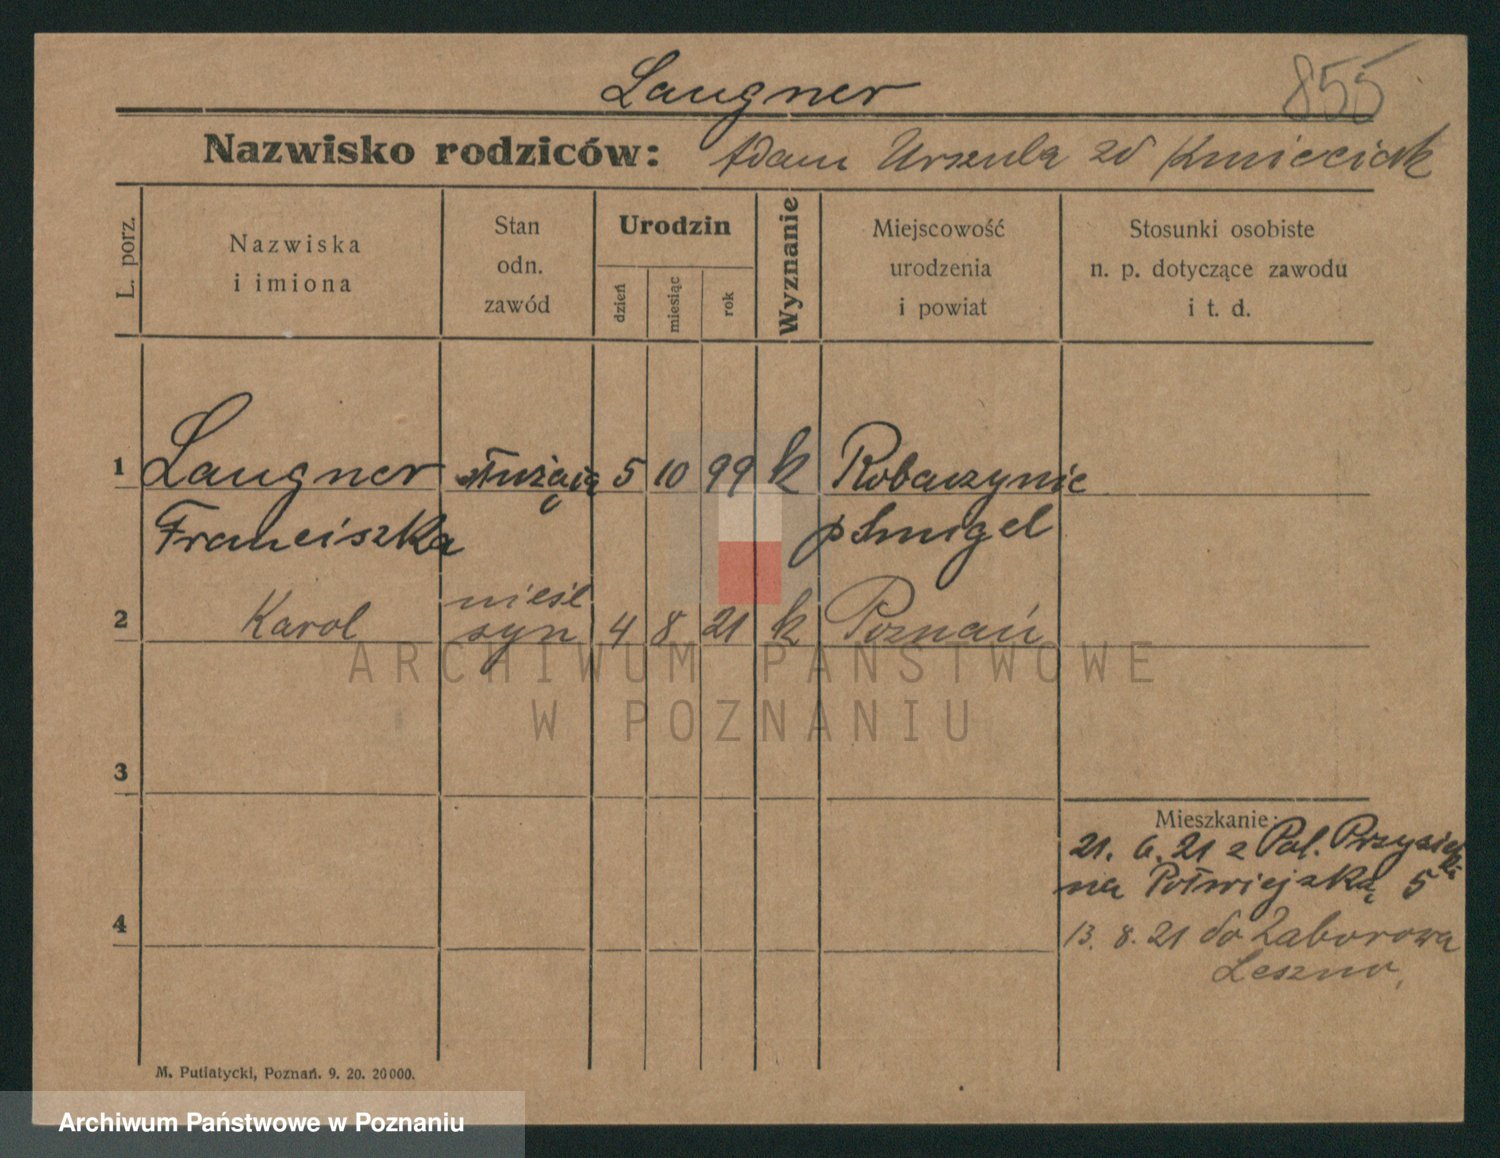 Laugner
855
Nazwisko rodziców: Adam Urszula zd Kmieciak
L. porz.
Nazwiska
i imiona
Stan
odn.
zawód
Urodzin
dzień
miesiąc
rok
Wyznanie
Miejscowość
urodzenia
i powiat
Stosunki osobiste
n. p. dotyczące zawodu
i t. d.
1 Laugner służąca 5 10 99 k Robaczynie
Franciszka p Smigel
nieśl
2 Karol syn 4 8 21 k Poznań
ARCHIWUM PAŃSTWOWE
W POZNANIU
3
Mieszkanie:
21. 6. 21 z Pol. Przysieka
na Półwiejską 5
4
13. 8. 21 do Zaborowa
Leszno,
M. Putiatycki, Poznań. 9. 20. 20000.
Archiwum Państwowe w Poznaniu